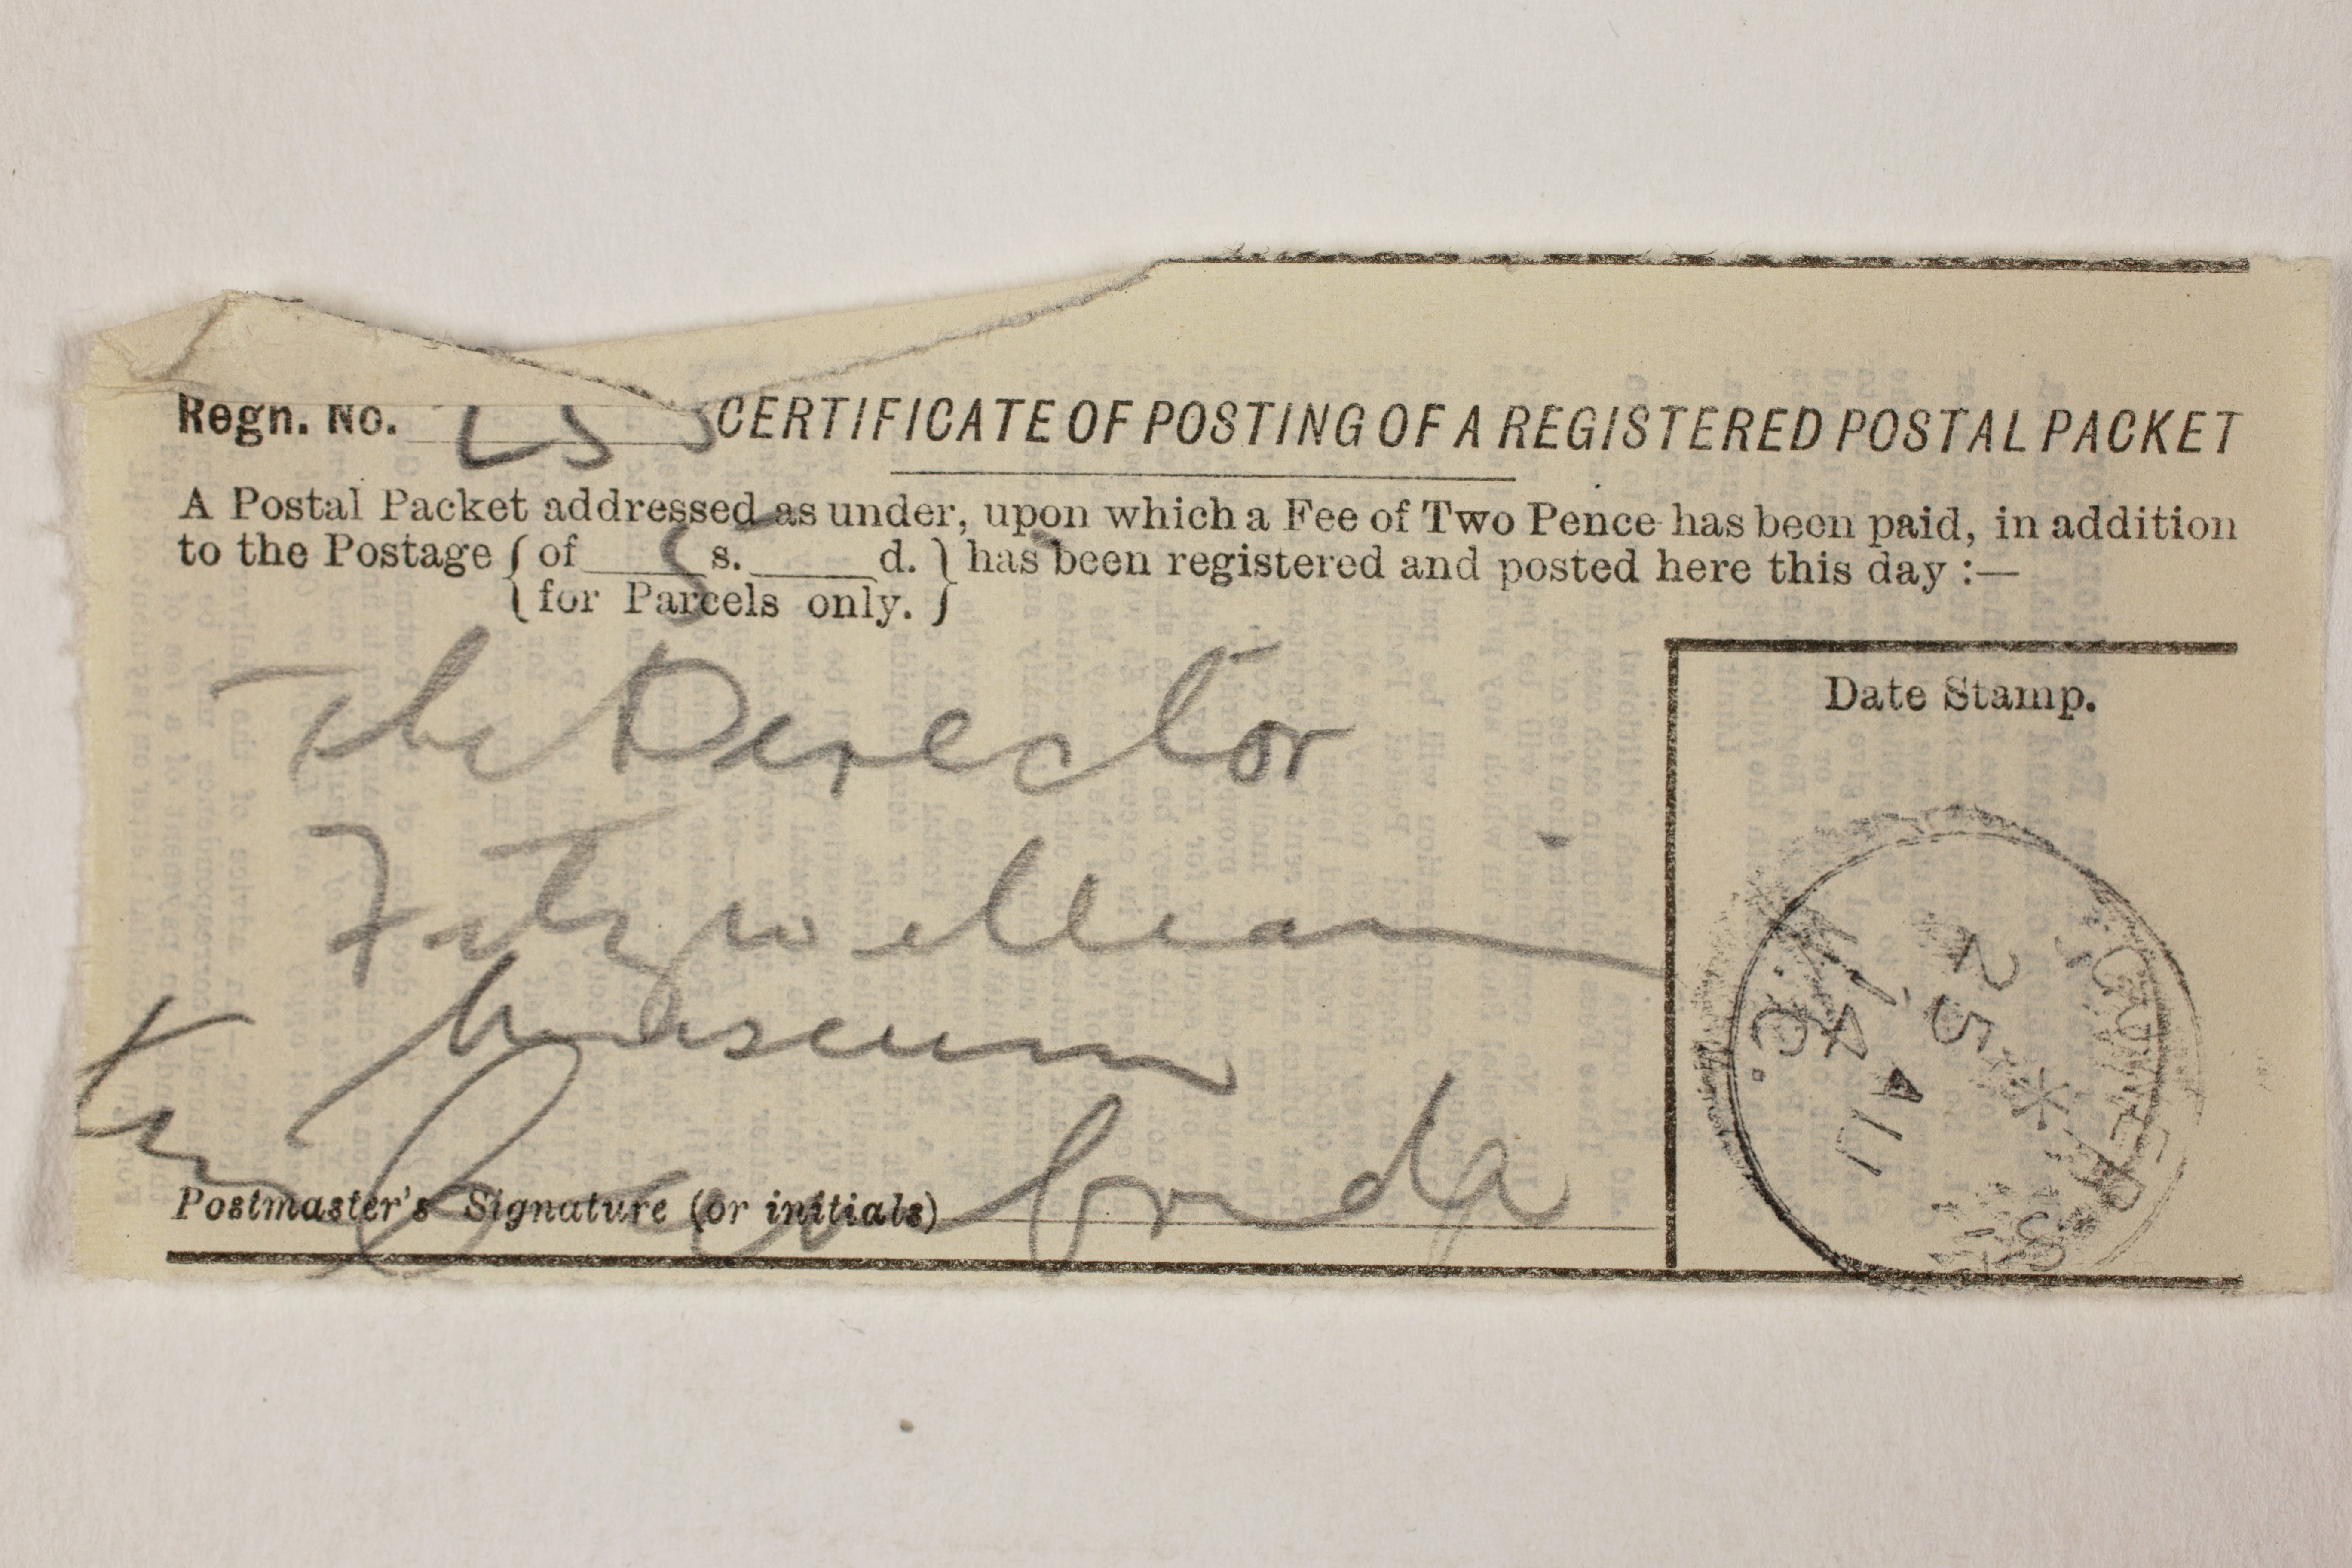 Regn. No. CERTIFICATE OF POSTING OF A REGISTERED POSTAL PACKET
A Postal Packet addressed as under, upon which a Fee of Two Pence has been paid, in addition
to the Postage { of ____ s. ____ d. } has been registered and posted here this day :—
{ for Parcels only. }
Date Stamp.
The Director
Fitzwilliam
Museum
Cambridge
Postmaster's Signature (or initials)